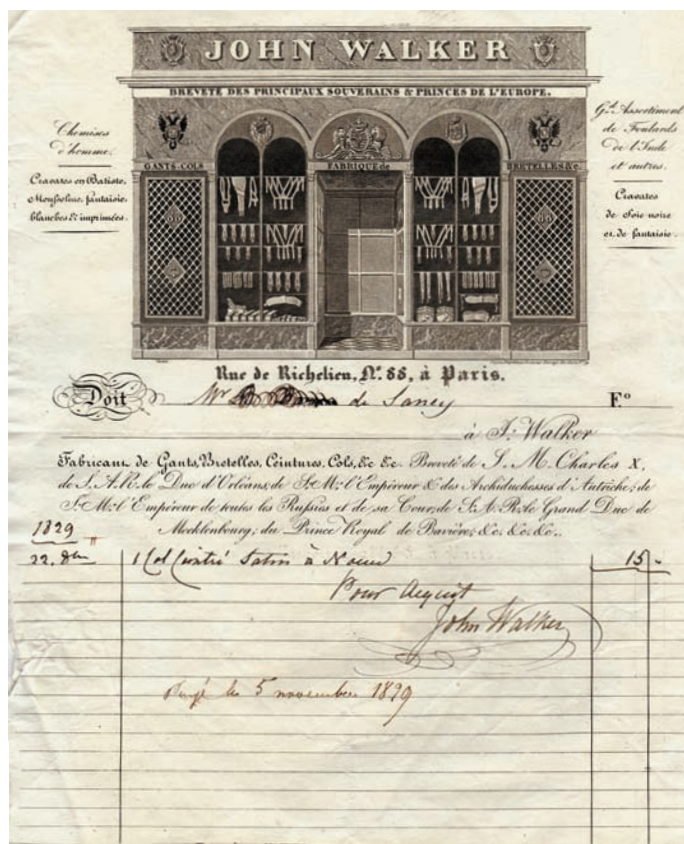 JOHN WALKER
BREVETÉ DES PRINCIPAUX SOUVERAINS & PRINCES DE L'EUROPE.
Chemises
d'homme.
Cravates en Batiste,
Mousseline, fantaisie,
blanches & imprimées.
GANTS. COLS
FABRIQUE de
BRETELLES &c.
Gd. Assortiment
de Foulards
de l'Inde
et autres.
Cravates
de Soie noire
et de fantaisie.
Rue de Richelieu, No. 88, à Paris.
Doit Mr de Sancy F.o
à J. Walker
Fabricant de Gants, Bretelles, Ceintures, Cols, &c &c. Breveté de S. M. Charles X,
de S. A. R. le Duc d'Orléans, de S. M. l'Empereur & des Archiduchesses d'Autriche; de
S. M. l'Empereur de toutes les Russies et de sa Cour, de S. A. R. le Grand Duc de
Mecklenbourg; du Prince Royal de Bavière; &c. &c. &c.
1829
22. 8bre 1 Col Satin à Noeud 15 -
Pour Acquit
John Walker
Payé le 5 novembre 1829